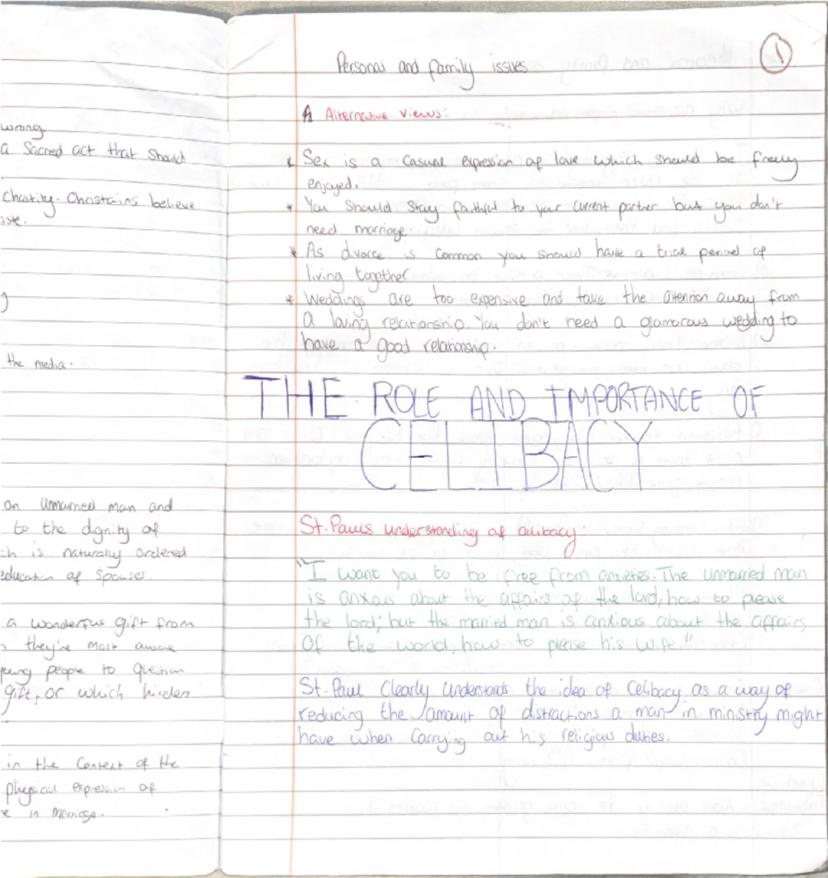 wrong
a Sacred act that should
Chastity. Christains believe
the media.
an Unmarried man and
to the dignity of
ch is naturally ordered
education of Spouses.
a wonderful gift from
they're most aware
young people to question
gift, or which hinders
in the Context of the
physical expression of
e in marriage.
1
Personal and family issues
Alternative views:
Sex is a casual expression of love which should be freely
enjoyed.
* You should stay faithful to your current partner but you don't
need marriage.
* As divorce is common you should have a trial period of
living together
* Weddings are too expensive and take the attention away from
a loving relationship. You don't need a glamorous wedding to
have a good relationship.
THE ROLE AND IMPORTANCE OF
CELIBACY
St. Pauls understanding of celibacy:
"I want you to be free from anxieties. The unmarried man
is anxious about the affairs of the lord, how to please
the lord; but the married man is anxious about the affairs
Of the world, how to please his wife."
St. Paul Clearly understands the idea of Celibacy as a way of
reducing the amount of distractions a man in ministry might
have when carrying out his religious duties.